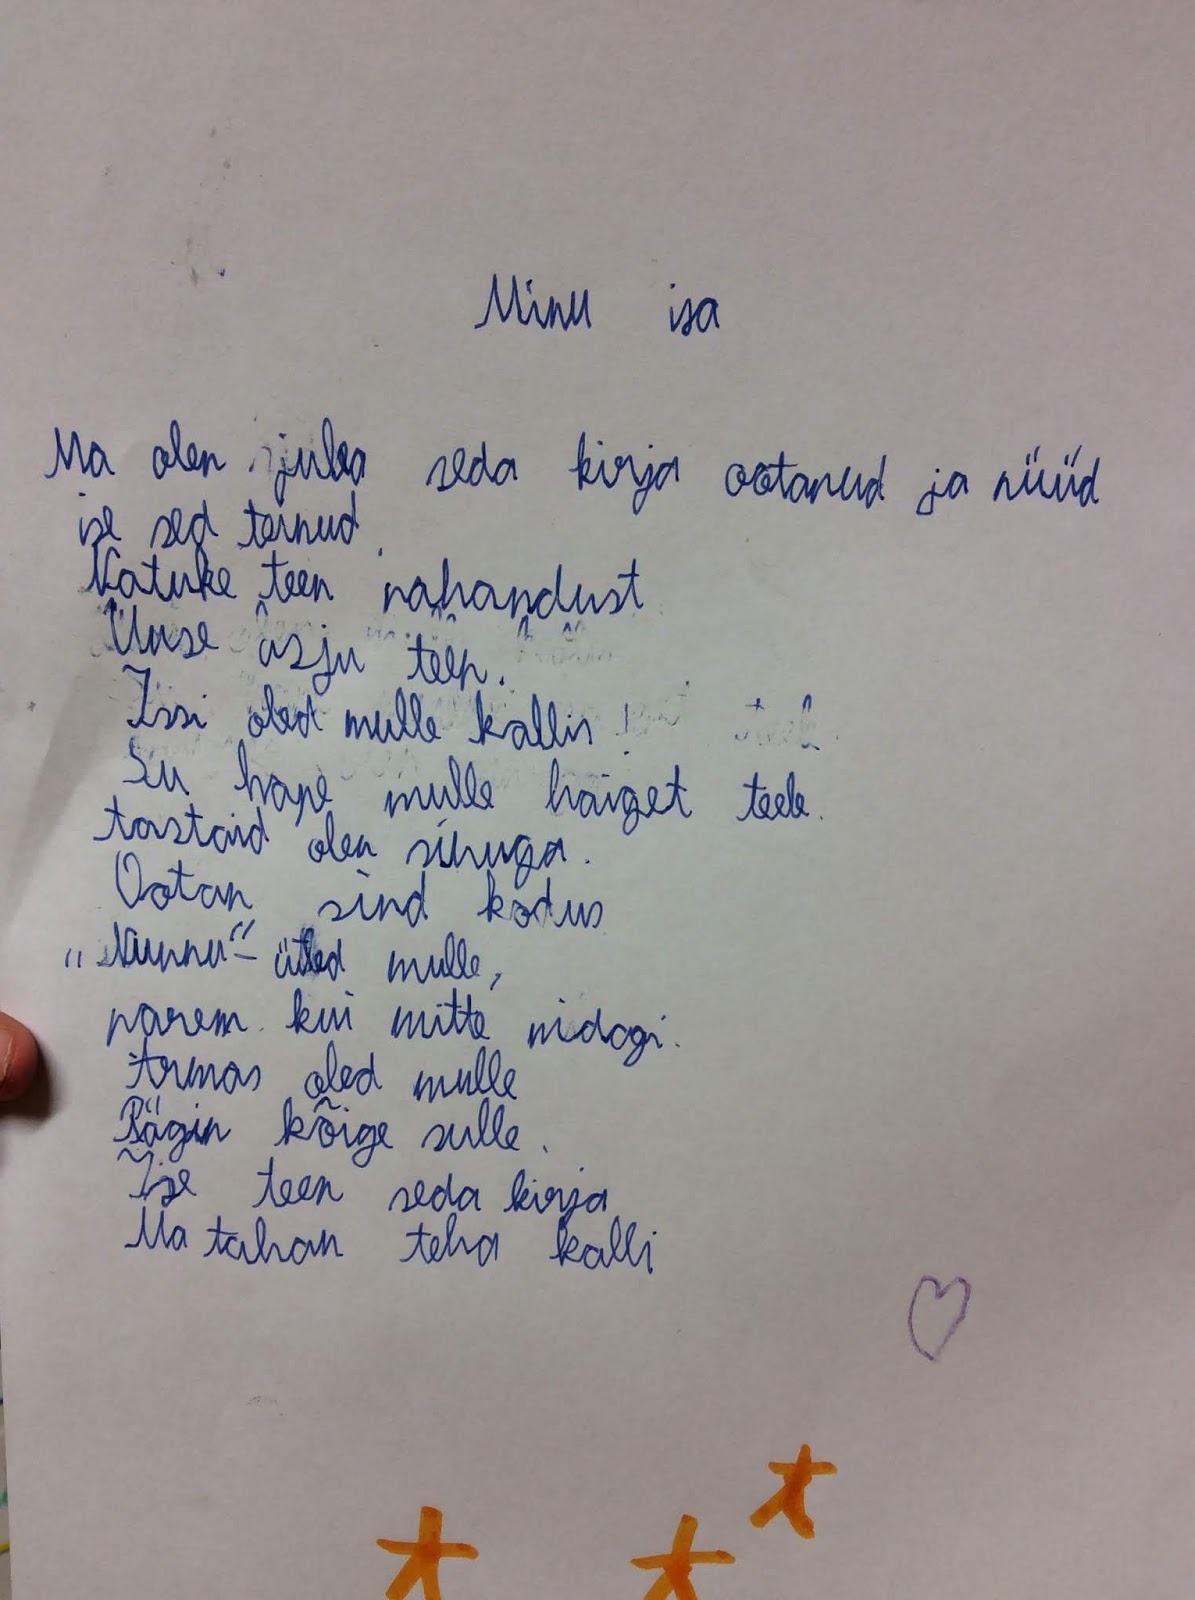 Minu isa
Ma olen julea seda kirja ootanud ja nüüd
ise sed teinud.
Natuke teen pahandust
Uuse asju teen.
Issi oled mulle kallis!
Su hape mulle haiget teele.
tastaid olen sinuga.
Ootan sind kodus
„Nunnu“ – ütled mulle,
parem kui mitte midagi.
Armas oled mulle
Rägin kõige sulle.
Ise teen seda kirja
Ma tahan teha kalli